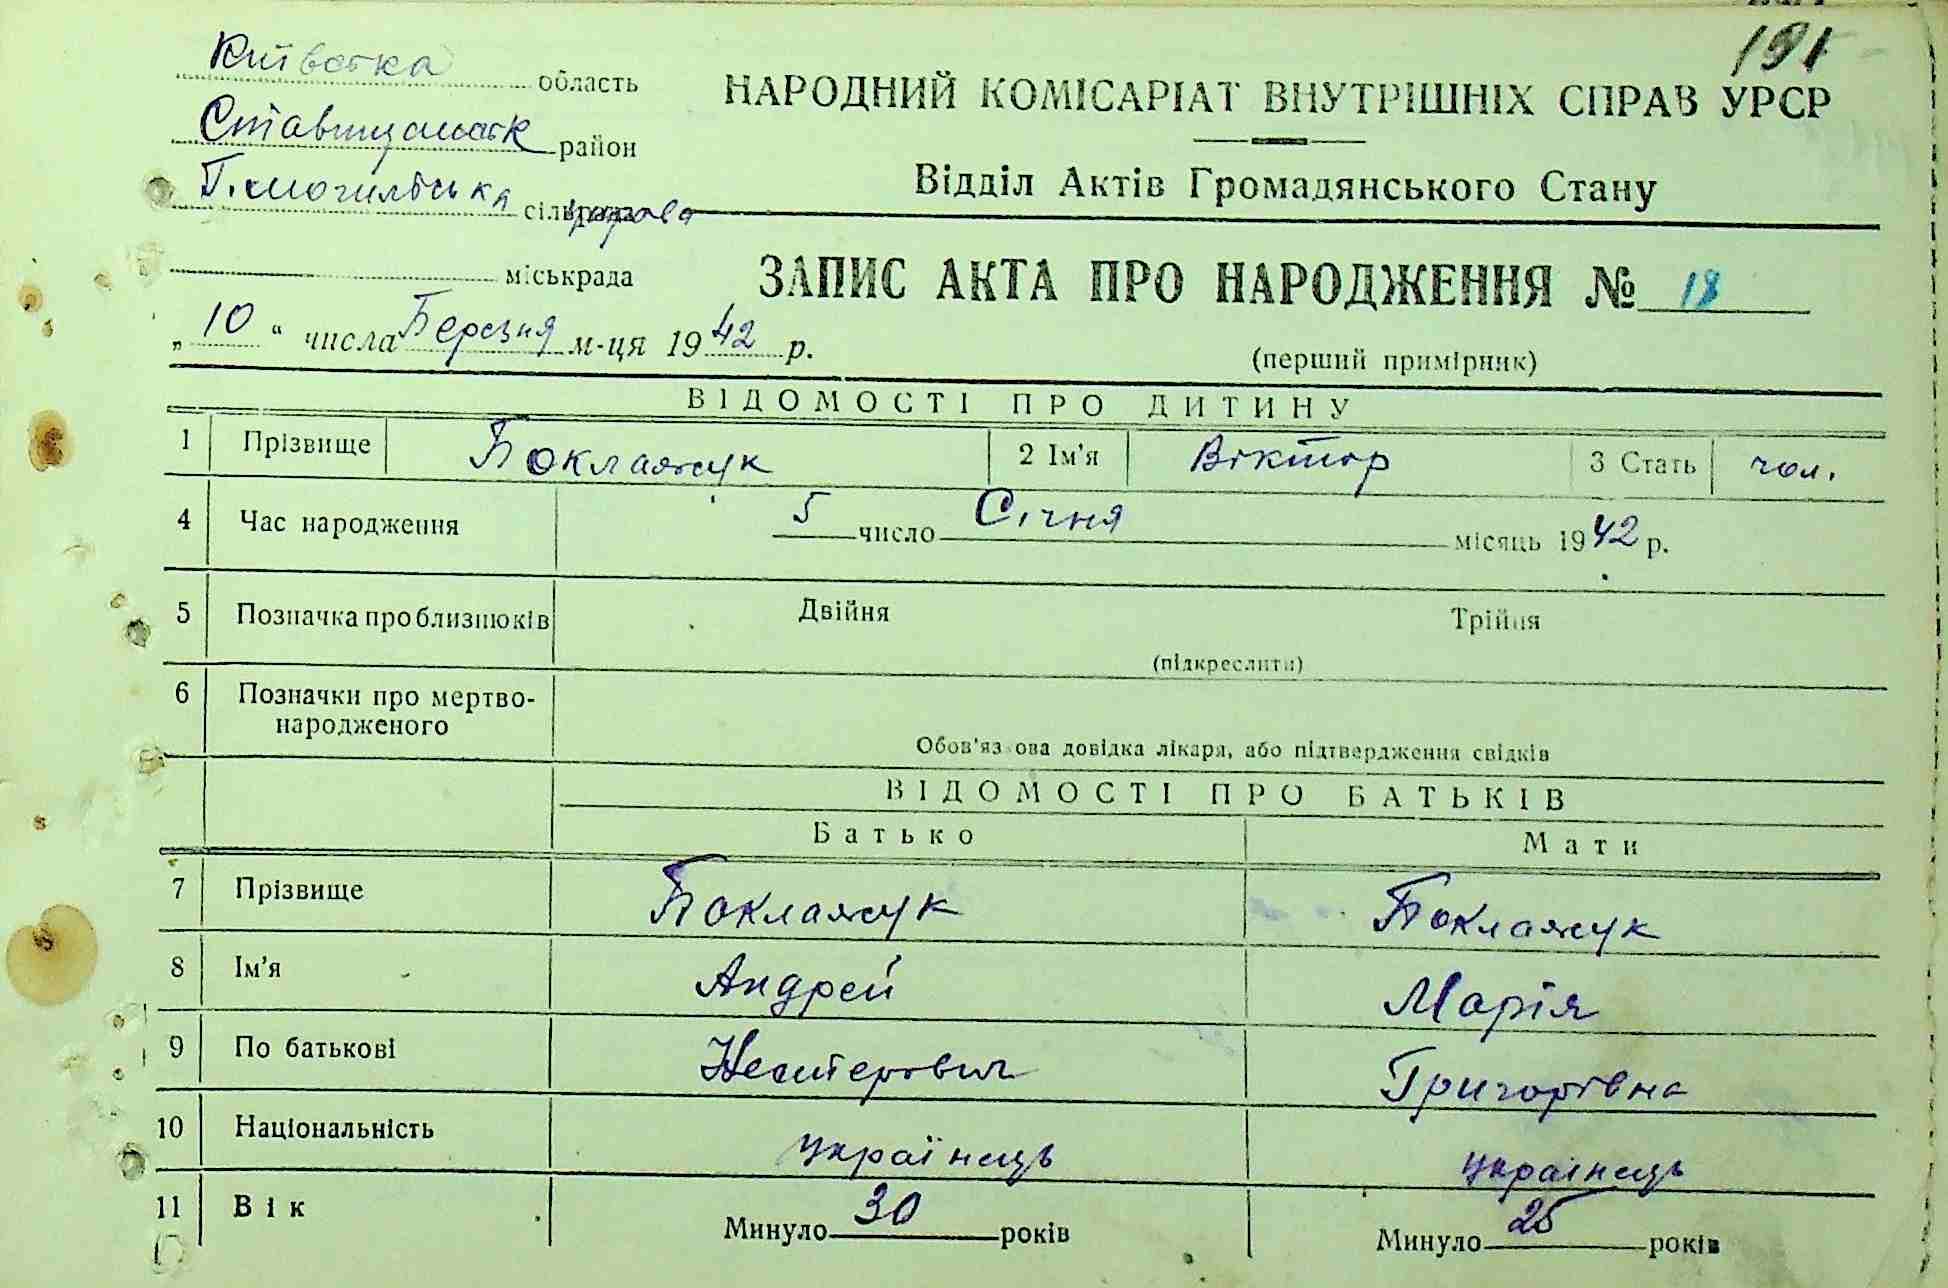 191
Київська область
Ставищанськ район
Г. могилівська сільрада управа
міськрада
НАРОДНИЙ КОМІСАРІАТ ВНУТРІШНІХ СПРАВ УРСР
Відділ Актів Громадянського Стану
ЗАПИС АКТА ПРО НАРОДЖЕННЯ № 18
„10“ числа Березня м-ця 1942 р.
(перший примірник)
ВІДОМОСТІ ПРО ДИТИНУ
1 Прізвище Боклажук 2 Ім'я Віктор 3 Стать чол.
4 Час народження 5 число Січня місяць 1942 р.
5 Позначка про близнюків Двійня Трійня
(підкреслити)
6 Позначки про мертво-
народженого
Обов'язкова довідка лікаря, або підтвердження свідків
ВІДОМОСТІ ПРО БАТЬКІВ
Батько Мати
7 Прізвище Боклажук Боклажук
8 Ім'я Андрей Марія
9 По батькові Нестерович Григорівна
10 Національність українець українець
11 Вік Минуло 30 років Минуло 25 років